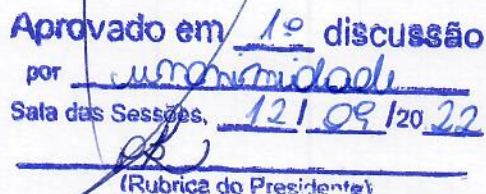 Aprovado em 1º discussão
por unanimidade
Sala das Sessões, 12/09/2022
(Rubrica do Presidente)